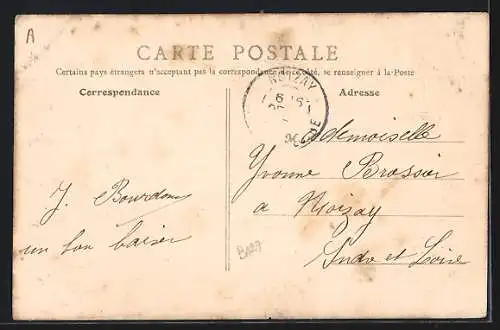 A
CARTE POSTALE
Certains pays étrangers n'acceptant pas la correspondance de ce côté, se renseigner à la Poste
Correspondance
Adresse
NOIZAY
Mademoiselle
Yvonne Brossier
à Noizay
Indre et Loire
J. Bourdon
un bon baiser